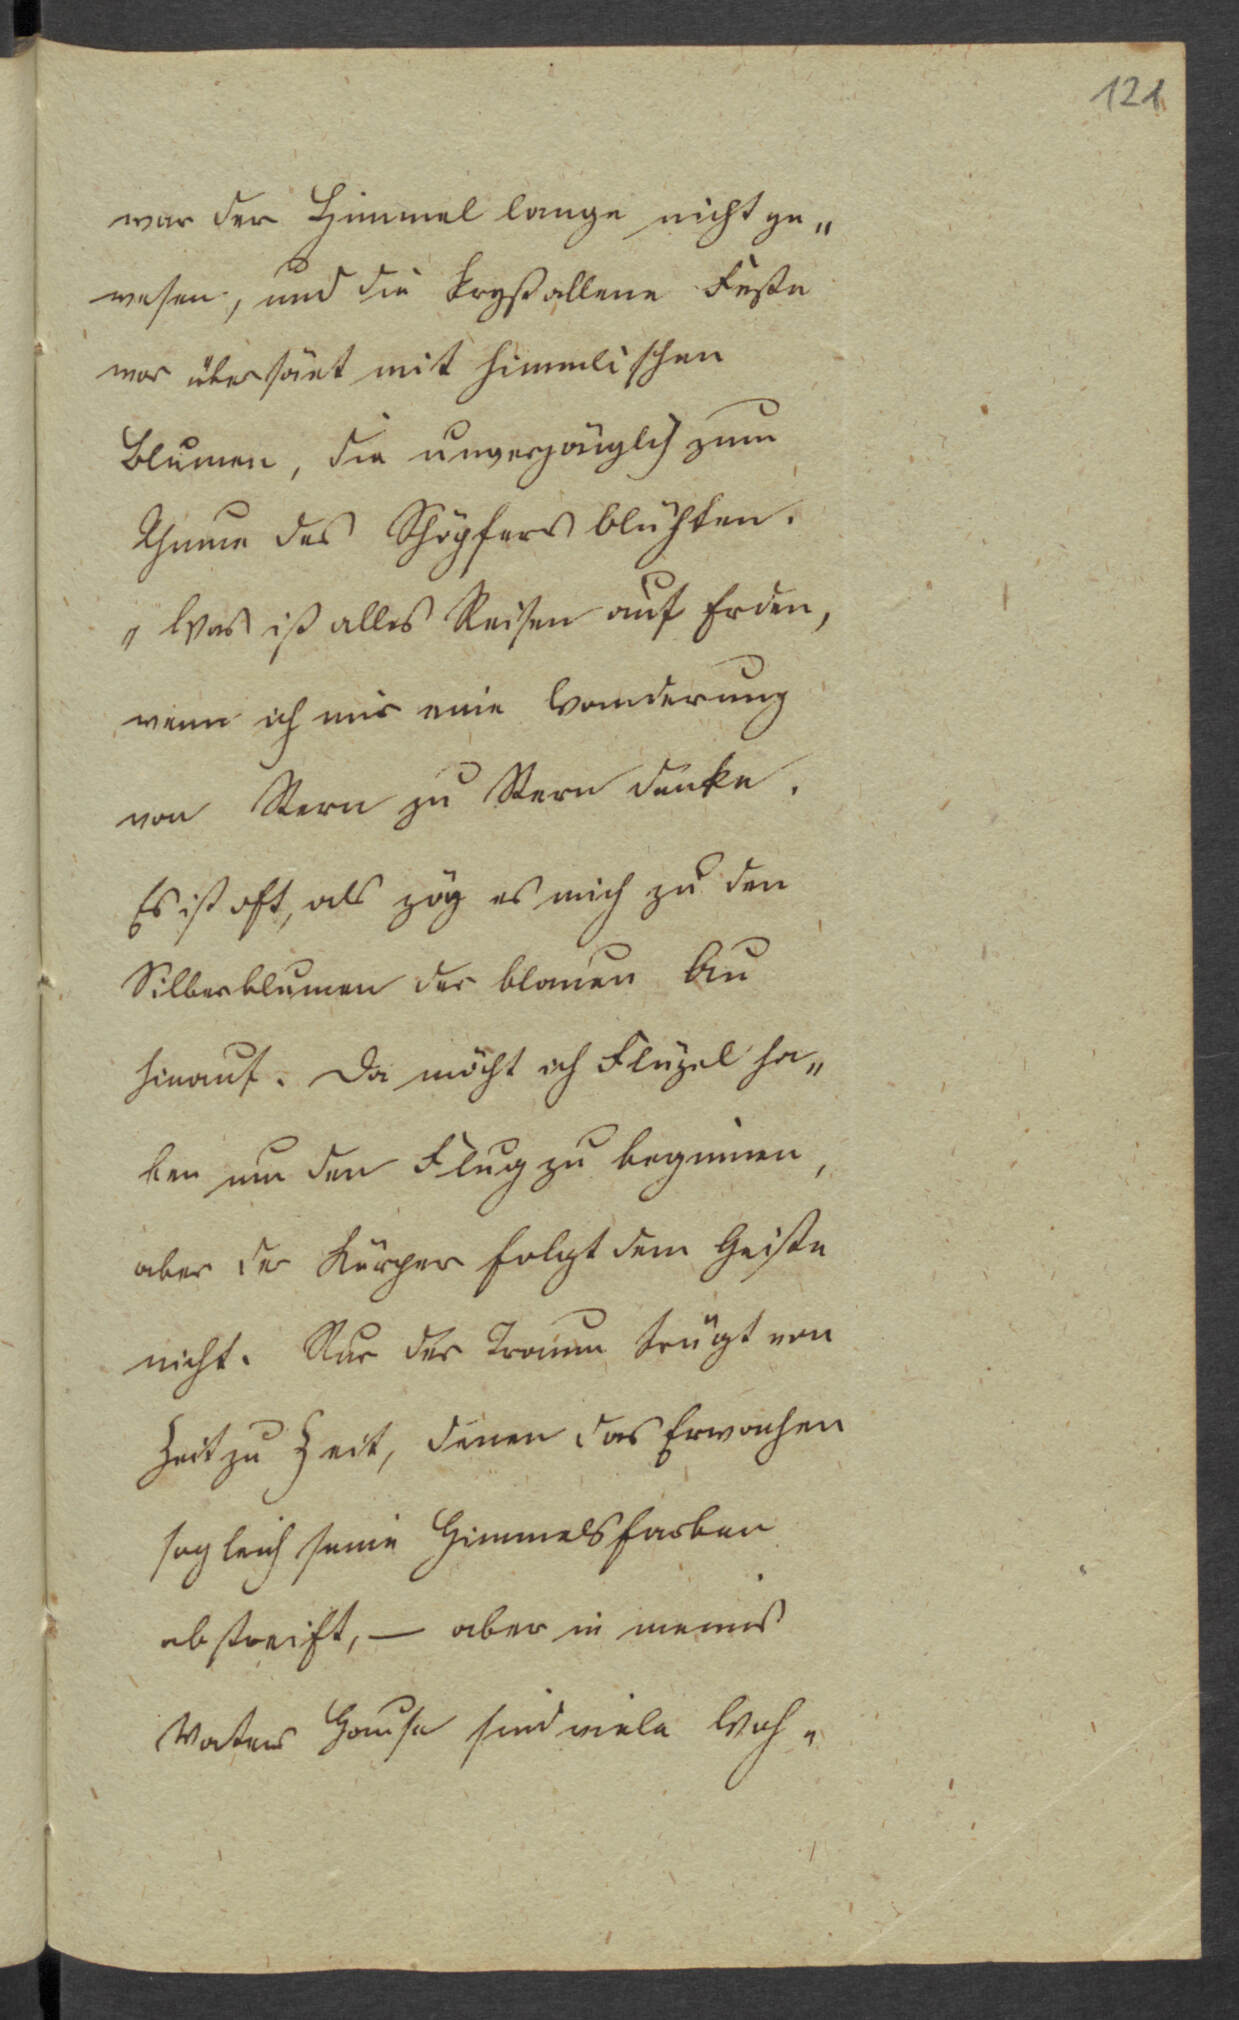 121
war der Himmel lange nicht ge„
wesen, und die krystallene Feste
war übersäet mit himmlischen
Blumen, die unvergänglich zum
Ruhme des Schöpfers blühten.
„Was ist alles Reisen auf Erden,
wenn ich mir eine Wanderung
von Stern zu Stern denke.
Es ist oft, als zög es mich zu den
Silberblumen der blauen Au
hinauf. Da möcht ich Flügel ha„
ben um den Flug zu beginnen,
aber der Körper folgt dem Geiste
nicht. Nur der Traum trügt von
Zeit zu Zeit, denen das Erwachen
sogleich seine Himmelsfarben
abstreift, — aber in meines
Vaters Hause sind viele Woh„